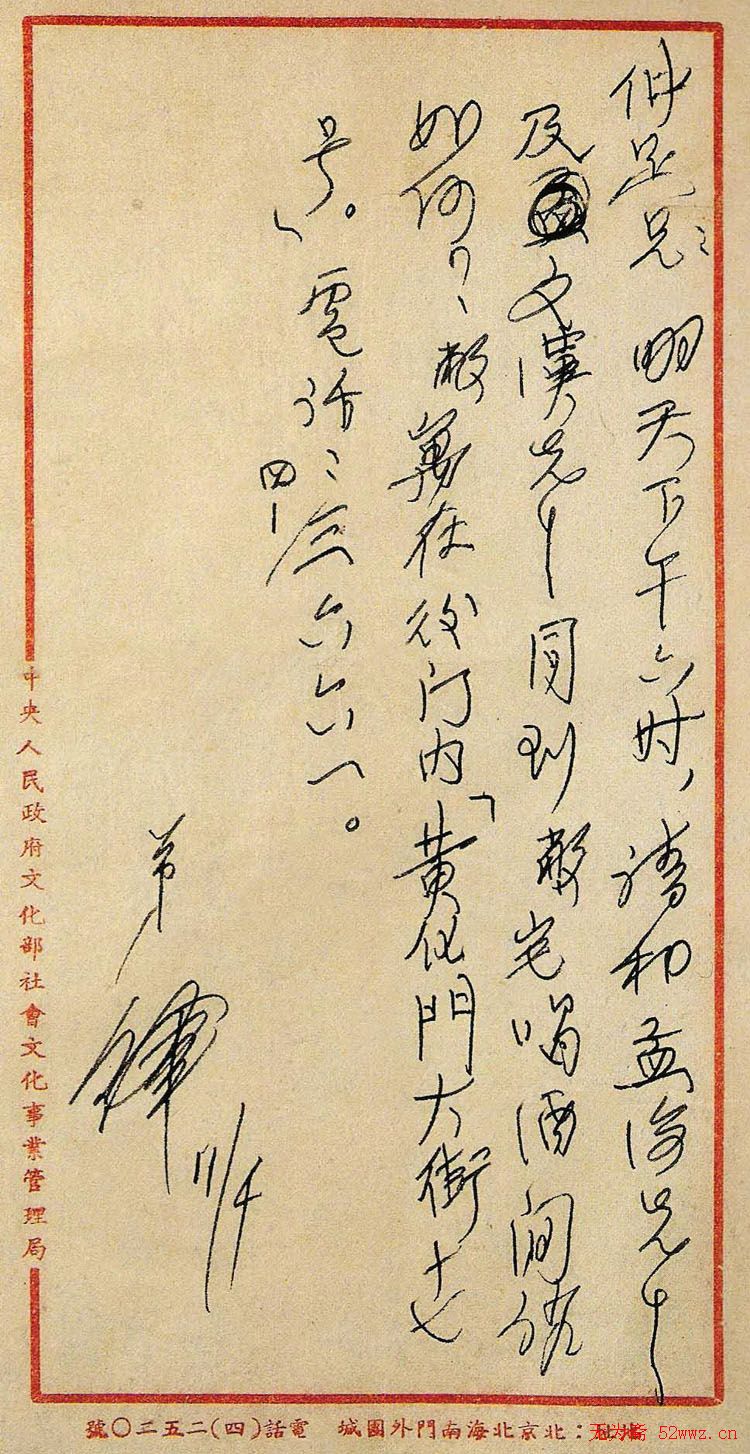 仲足兄：明天下午六时，请和孟海兄
及文漢兄同到敝宅喝酒闲谈
如何？敝寓在後门内「黄化門大街十七
号」。電话：四-三六六一。
弟
鐸 11/4
中央人民政府文化部社會文化事業管理局
址：北京北海南門外團城 電話(四)二五三〇號
52wwz.cn